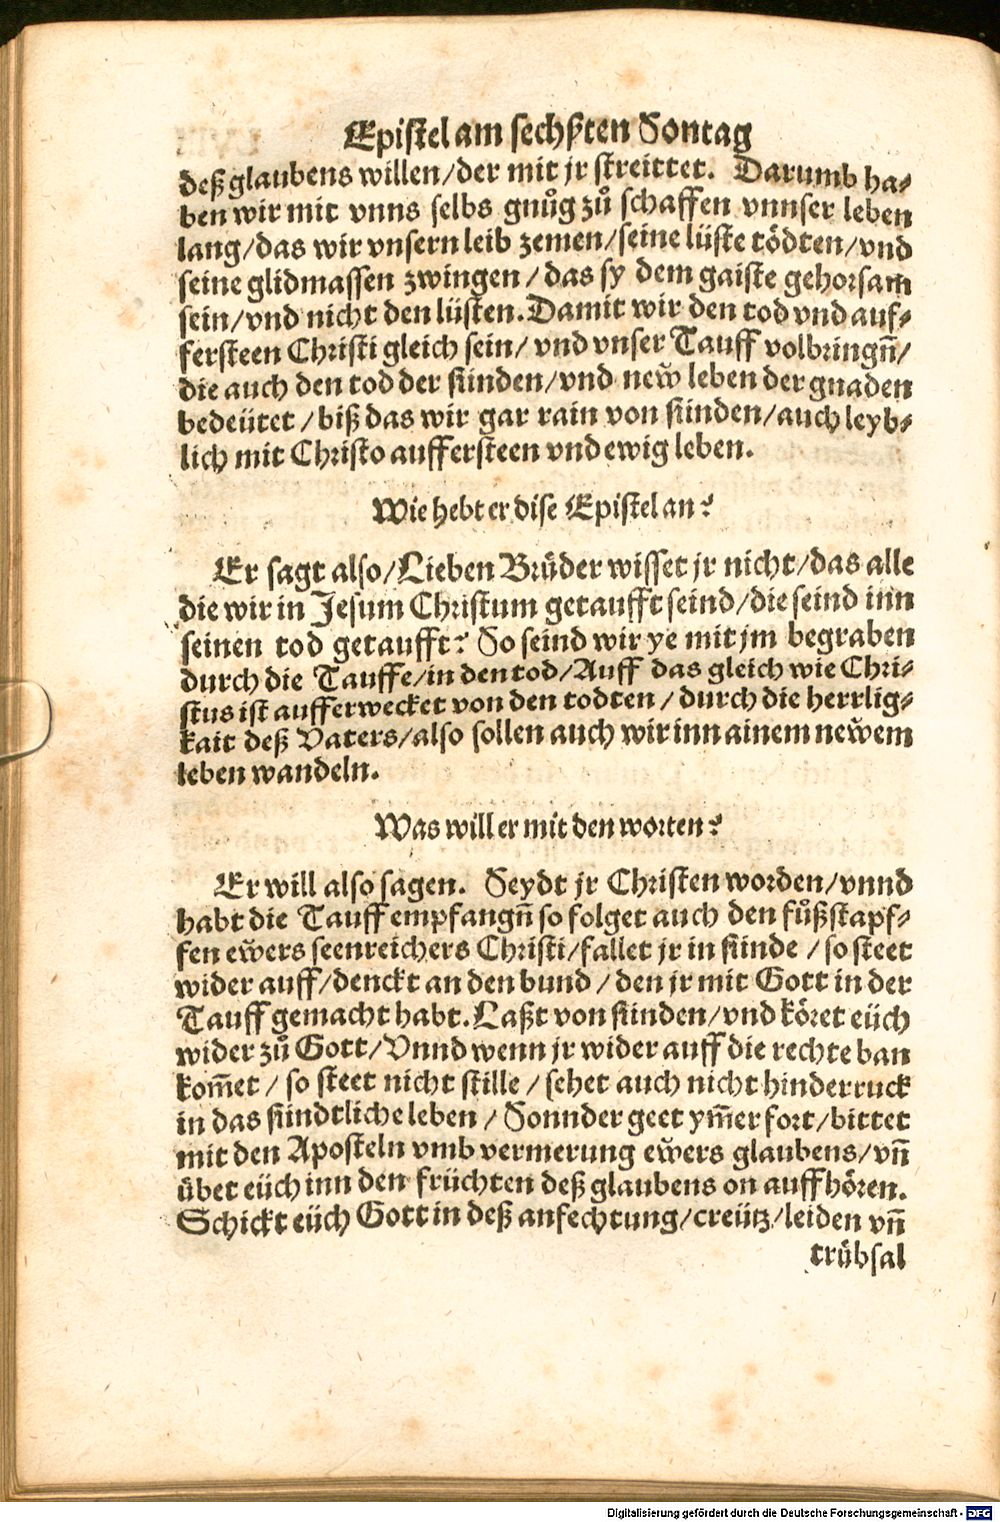 Epistel am sechßten Sontag
deß glaubens willen/der mit jr streittet. Darumb ha⸗
ben wir mit vnns selbs gnůg zů schaffen vnnser leben
lang/das wir vnsern leib zemen/seine lüste tödten/vnd
seine glidmassen zwingen/das sy dem gaiste gehorsam
sein/vnd nicht den lüsten. Damit wir den tod vnd auf⸗
fersteen Christi gleich sein/vnd vnser Tauff volbringñ/
die auch den tod der sünden/vnd new̌ leben der gnaden
bedeütet/biß das wir gar rain von sünden/auch leyb⸗
lich mit Christo auffersteen vnd ewig leben.
Wie hebt er dise Epistel an?
Er sagt also/Lieben Brüder wisset jr nicht/das alle
die wir in Jesum Christum getaufft seind/die seind inn
seinen tod getaufft? So seind wir ye mit jm begraben
durch die Tauffe/in den tod/Auff das gleich wie Chri⸗
stus ist aufferwecket von den todten/durch die herrlig⸗
kait deß Vaters/also sollen auch wir inn ainem new̌em
leben wandeln.
Was will er mit den worten?
Er will also sagen. Seydt jr Christen worden/vnnd
habt die Tauff empfangñ so folget auch den fůßstapf⸗
fen ew̌ers seenreichers Christi/fallet jr in sünde/so steet
wider auff/denckt an den bund/den jr mit Gott in der
Tauff gemacht habt. Laßt von sünden/vnd köret eüch
wider zů Gott/Vnnd wenn jr wider auff die rechte ban
kom̃et/so steet nicht stille/sehet auch nicht hinderruck
in das sündtliche leben/Sonnder geet ym̃er fort/bittet
mit den Aposteln vmb vermerung ew̌ers glaubens/vñ
übet eüch inn den früchten deß glaubens on auffhören.
Schickt eüch Gott in deß anfechtung/creütz/leiden vñ
trübsal
Digitalisierung gefördert durch die Deutsche Forschungsgemeinschaft - DFG